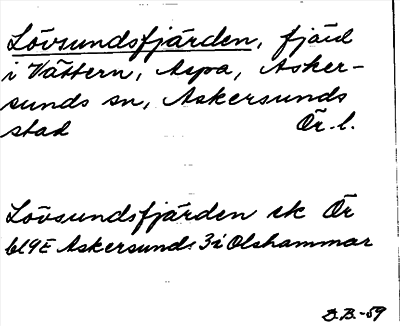 Lövsundsfjärden, fjärd
i Vättern, Aspa, Asker-
sunds sn, Askersunds
stad Ör. l.
Lövsundsfjärden ek Ör
bl 9E Askersund: 3 i Olshammar
D.B.-59